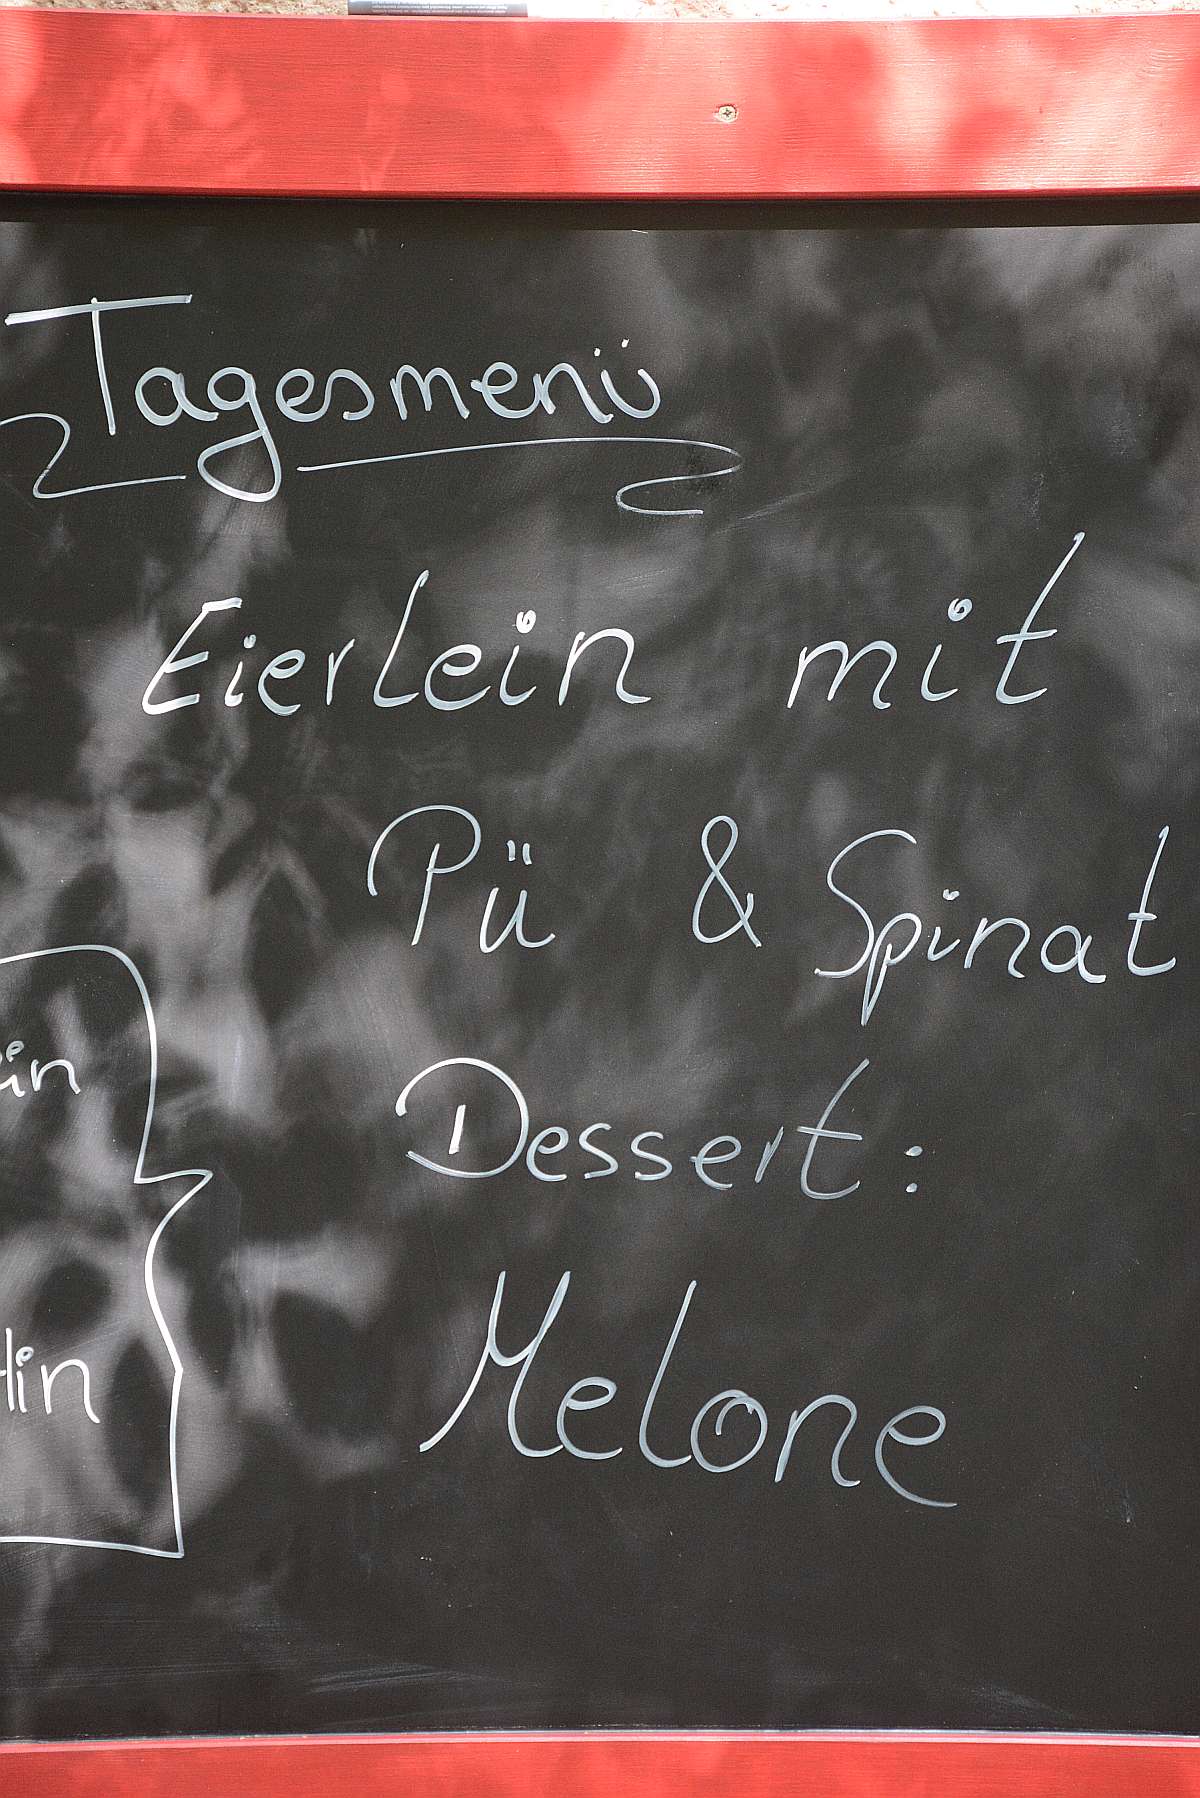 Tagesmenü
Eierlein mit
Pü & Spinat
Dessert:
Melone